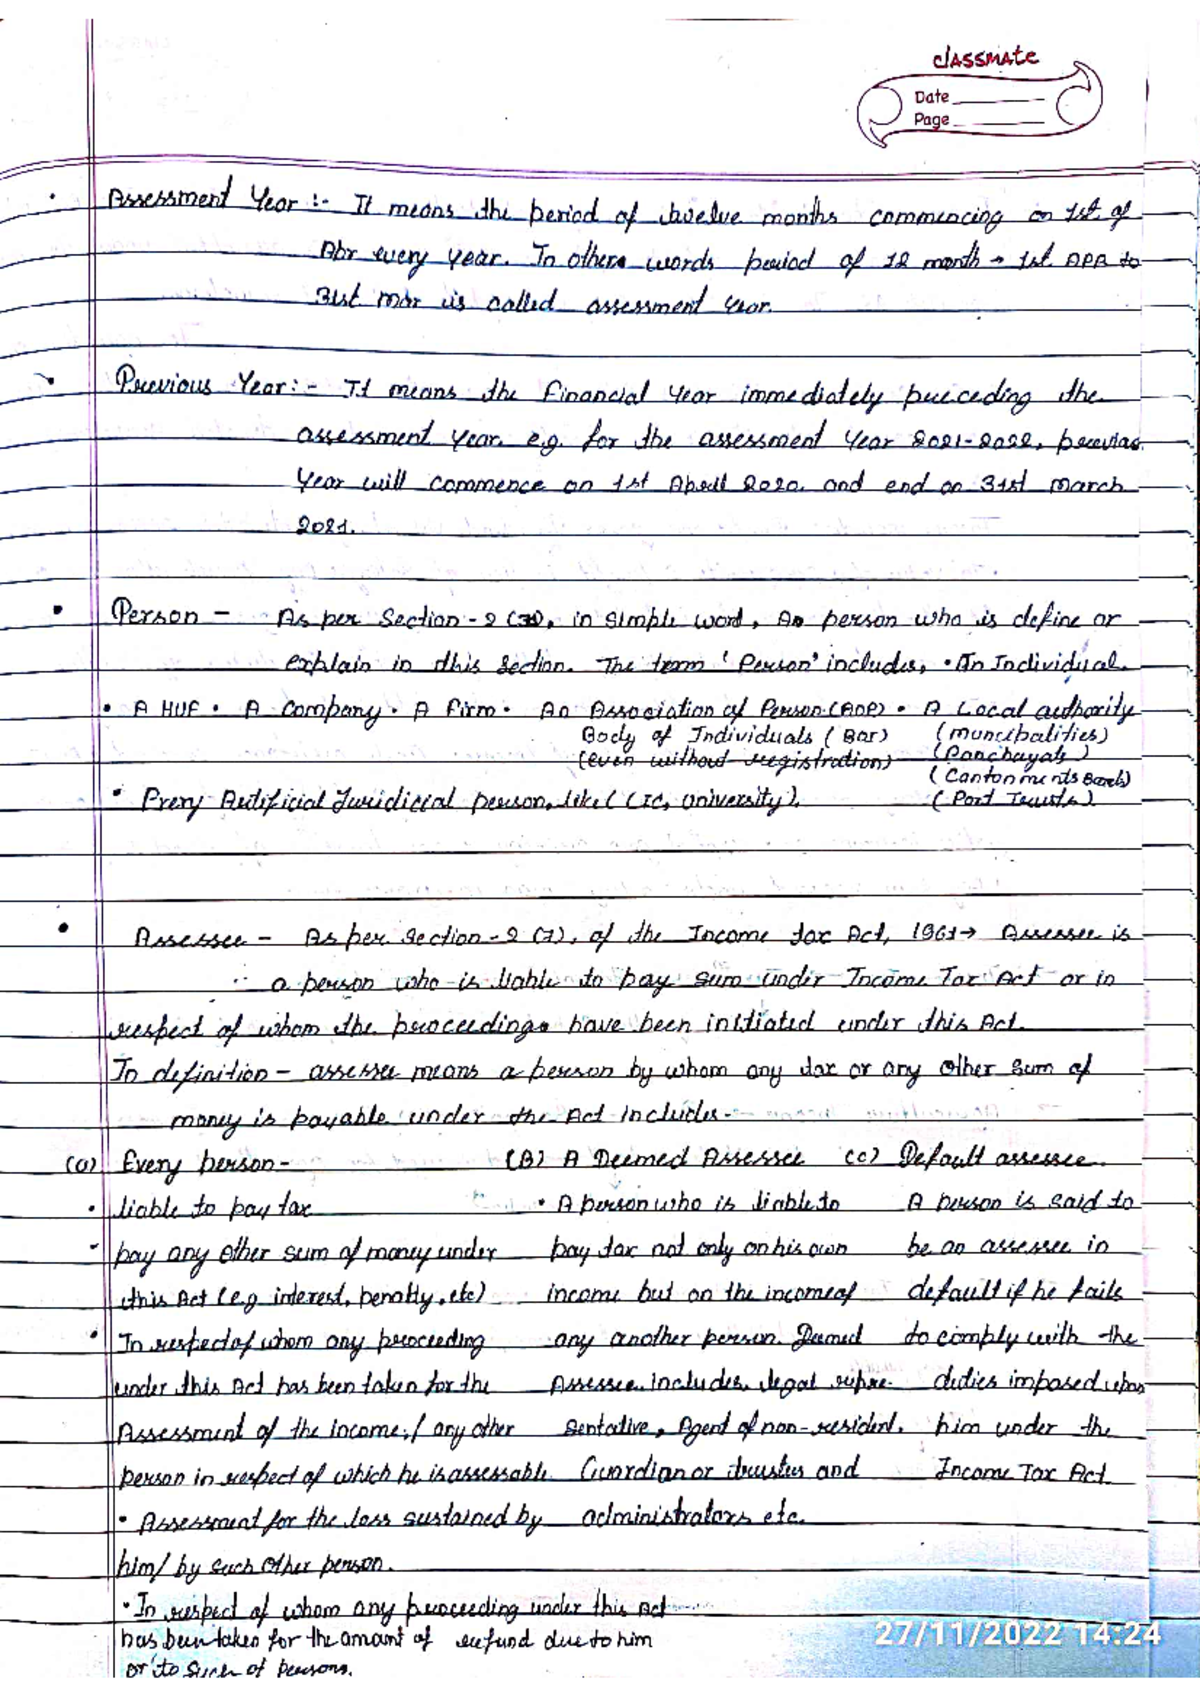 classmate
Date
Page
• Assessment Year :- It means the period of twelve months commencing on 1st of
Apr every year. In others words period of 12 month → 1st APR to
31st Mar is called assessment year.
Previous Year :- It means the Financial Year immediately preceding the
assessment year. e.g. for the assessment Year 2021-2022, previous
Year will commence on 1st April 2020. and end on 31st March
2021.
• Person - As per Section - 2 (31), in simple word, An person who is define or
explain in this section. The term 'Person' includes, • An Individual.
• A HUF • A Company • A Firm • An Association of Person (AOP) • A Local authority
Body of Individuals ( (muncipalities)
(even without registration) (Panchayats)
(Cantonments Board)
• Artificial Juridicial person, like (LIC, University). (Port Trusts)
• Assessee - As per Section - 2 (7), of the Income tax Act, 1961 → Assessee is
a person who is liable to pay sum under Income Tax Act or in
respect of whom the proceedings have been initiated under this Act.
In definition - assessee means a person by whom any tax or any other sum of
money is payable under the Act includes -
(a) Every person - (B) A Deemed Assessee (c) Default assessee.
• liable to pay tax • A person who is liable to A person is said to
- pay any other sum of money under pay tax not only on his own be an assessee in
this Act (e.g interest, penalty, etc) income but on the income of default if he fails
• In respect of whom any proceeding any another person. Deemed to comply with the
under this Act has been taken for the Assessee includes, legal repre- duties imposed upon
Assessment of the income / any other sentative, Agent of non-resident, him under the
person in respect of which he is assessable Guardian or trustees and Income Tax Act.
• Assessment for the loss sustained by administrators etc.
him/ by such other person.
• In respect of whom any proceeding under this Act
has been taken for the amount of refund due to him
or to such of persons.
27/11/2022 14:24